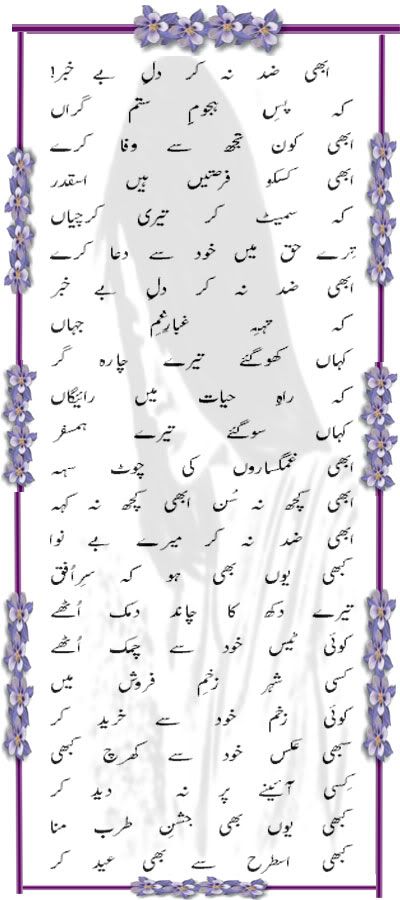 ابھی ضد نہ کر دلِ بے خبر!
کہ پسِ ہجومِ ستم گراں
ابھی کون تجھ سے وفا کرے
ابھی کسکو فرصتیں ہیں اسقدر
کہ سمیٹ کر تیری کرچیاں
تِرے حق میں خود سے دعا کرے
ابھی ضد نہ کر دلِ بے خبر
کہ تہہِ غبارِغمِ جہاں
کہاں کھوگئے تیرے چارہ گر
کہ راہِ حیات میں رائیگاں
کہاں سوگئے تیرے ہمسفر
ابھی غمگساروں کی چوٹ سہہ
ابھی کچھ نہ سُن ابھی کچھ نہ کہہ
ابھی ضد نہ کر میرے بے نوا
کبھی یوں بھی ہو کہ سرِاُفق
تیرے دکھ کا چاند دمک اُٹھے
کوئی ٹیس خود سے چمک اُٹھے
کسی شہرِ زخم فروش میں
کوئی زخم خود سے خرید کر
سبھی عکس خود سے کھرچ کبھی
کِسی آئینے پر نہ دید کر
کبھی یوں بھی جشنِ طرب منا
کبھی اسطرح سے بھی عید کر